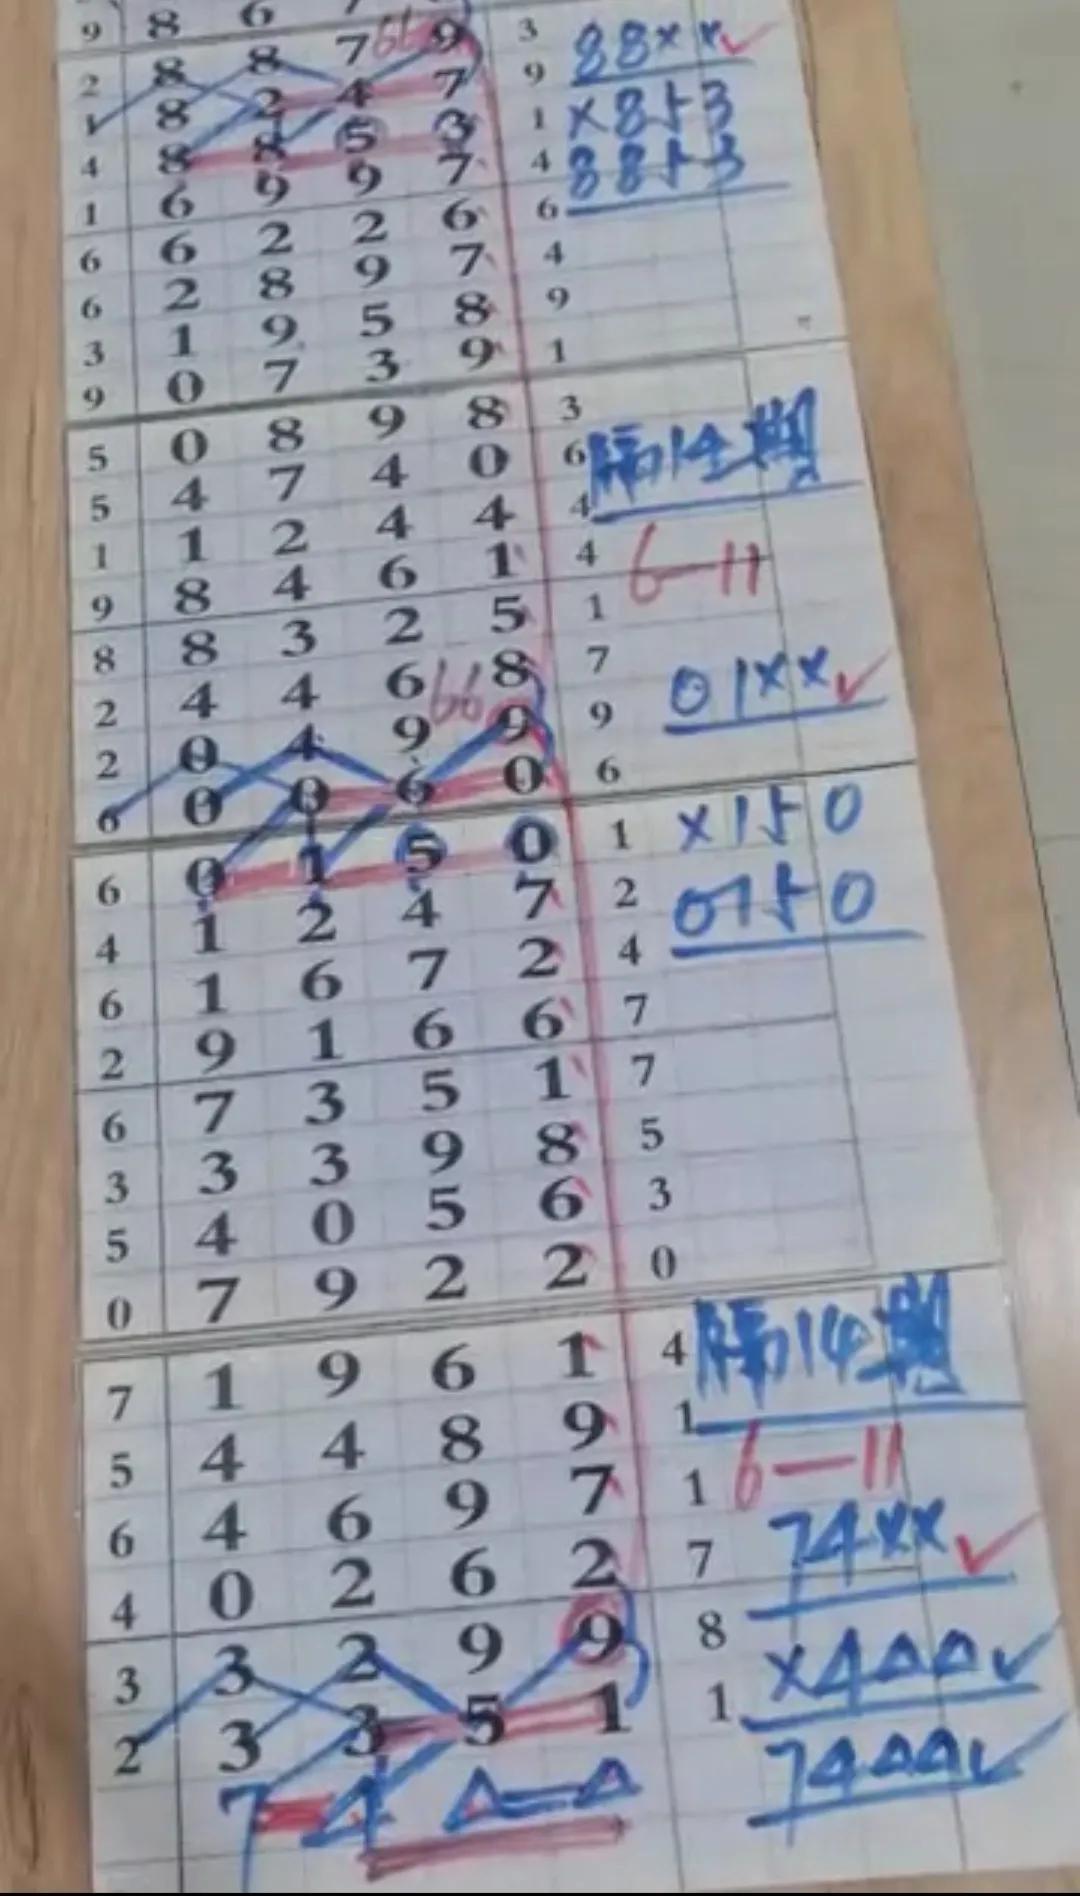 9 8 6 7 3
2 8 8 7 66 9 9 88××✓
1 8 2 4 7 1 ×853
4 8 8 5 3 4 8853
1 6 9 9 7 6
6 6 2 2 6 4
6 2 8 9 7 9
3 1 9 5 8 1
9 0 7 3 9
5 0 8 9 8 3
5 4 7 4 0 6 隔14期
1 1 2 4 4 4
9 8 4 6 1 4 6—11
8 8 3 2 5 1
2 4 4 6 66 8 7
2 0 4 9 9 9 01××✓
6 0 0 6 0 6
6 0 1 5 0 1 ×150
4 1 2 4 7 2 0150
6 1 6 7 2 4
2 9 1 6 6 7
6 7 3 5 1 7
3 3 3 9 8 5
5 4 0 5 6 3
0 7 9 2 2 0
7 1 9 6 1 4 隔14期
5 4 4 8 9 1
6 4 6 9 7 1 6—11
4 0 2 6 2 7 74××✓
3 3 2 9 9 8 ×4△△✓
2 3 3 5 1 1 74△△✓
7—4 △—△